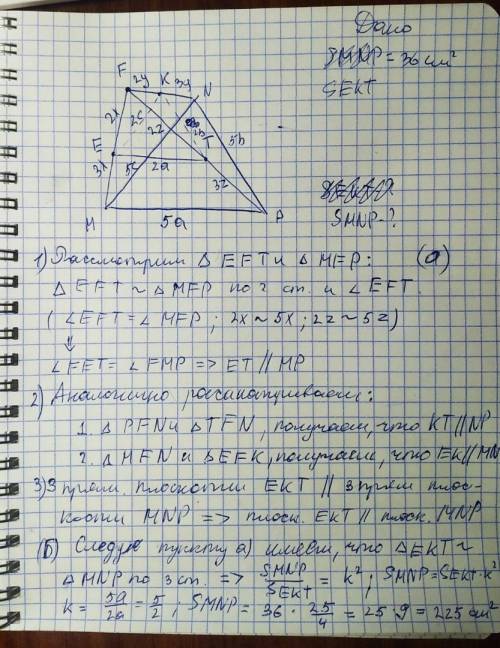 Дано
SMNP = 36 см²
SEKT
SMNP-?
F 2y K 3y N
2x 2c 2z 2b 5b
E T
3x 5c 2a 3z
M 5a P
1) Рассмотрим △ EFT и △ MFP: (а)
△ EFT ~ △ MFP по 2 ст. и ∠ EFT.
( ∠EFT = ∠ MFP ; 2x ~ 5x ; 2z ~ 5z )
⇓
∠FET = ∠ FMP => ET // MP
2) Аналогично рассматриваем:
1. △ PFN и △ TFN, получаем, что KT // NP
2. △ MFN и △ EFK, получаем, что EK // MN
3) 3 прям. плоскости EKT // 3 прям плос-
кости MNP => плоск. EKT // плоск. MNP
(Б) Следуя пункту а) имеем, что △EKT ~
△ MNP по 3 ст. => SMNP/SEKT = k² ; SMNP = SEKT·k²
K = 5a/2a = 5/2 ; SMNP = 36 · 25/4 = 25 · 9 = 225 см²